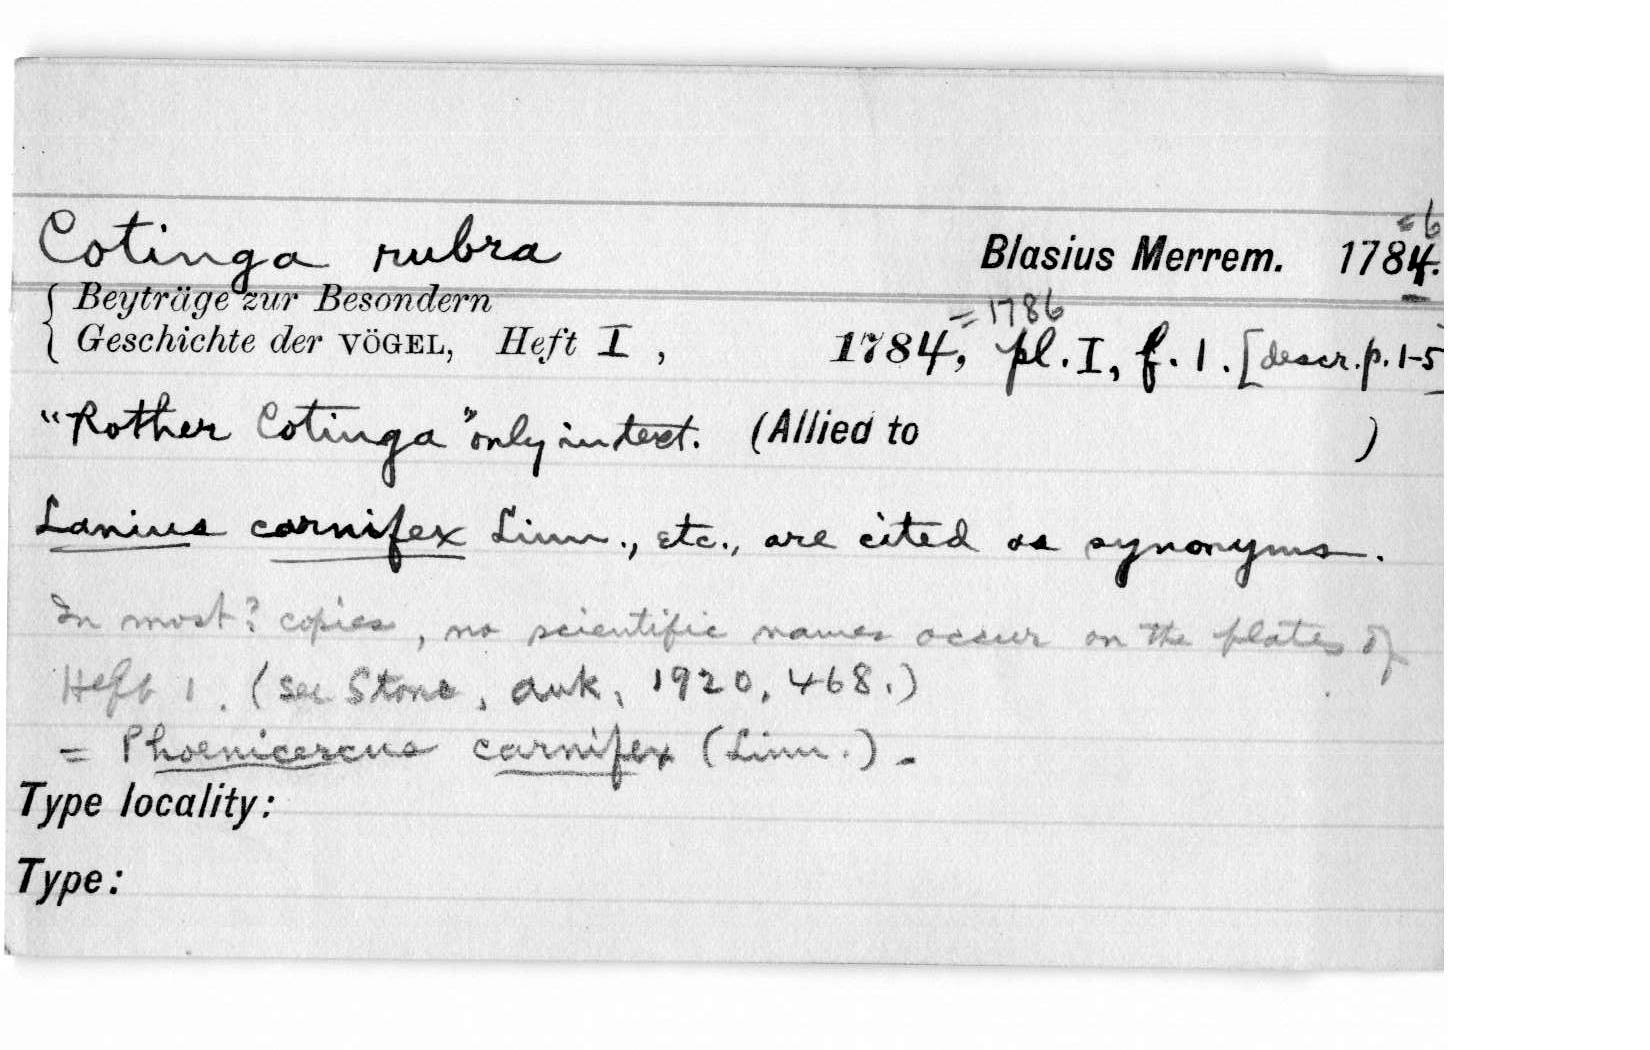 Cotinga rubra Blasius Merrem. 1784. =6
{ Beyträge zur Besondern
Geschichte der VÖGEL, Heft I, 1784, =1786 pl. I, f. 1. [descr. p. 1-5]
"Rother Cotinga" only in text. (Allied to )
Lanius carnifex Linn., etc., are cited as synonyms.
In most? copies, no scientific names occur on the plates of
Heft 1. (see Stone, Auk, 1920, 468.)
= Phoenicercus carnifex (Linn.).
Type locality:
Type: